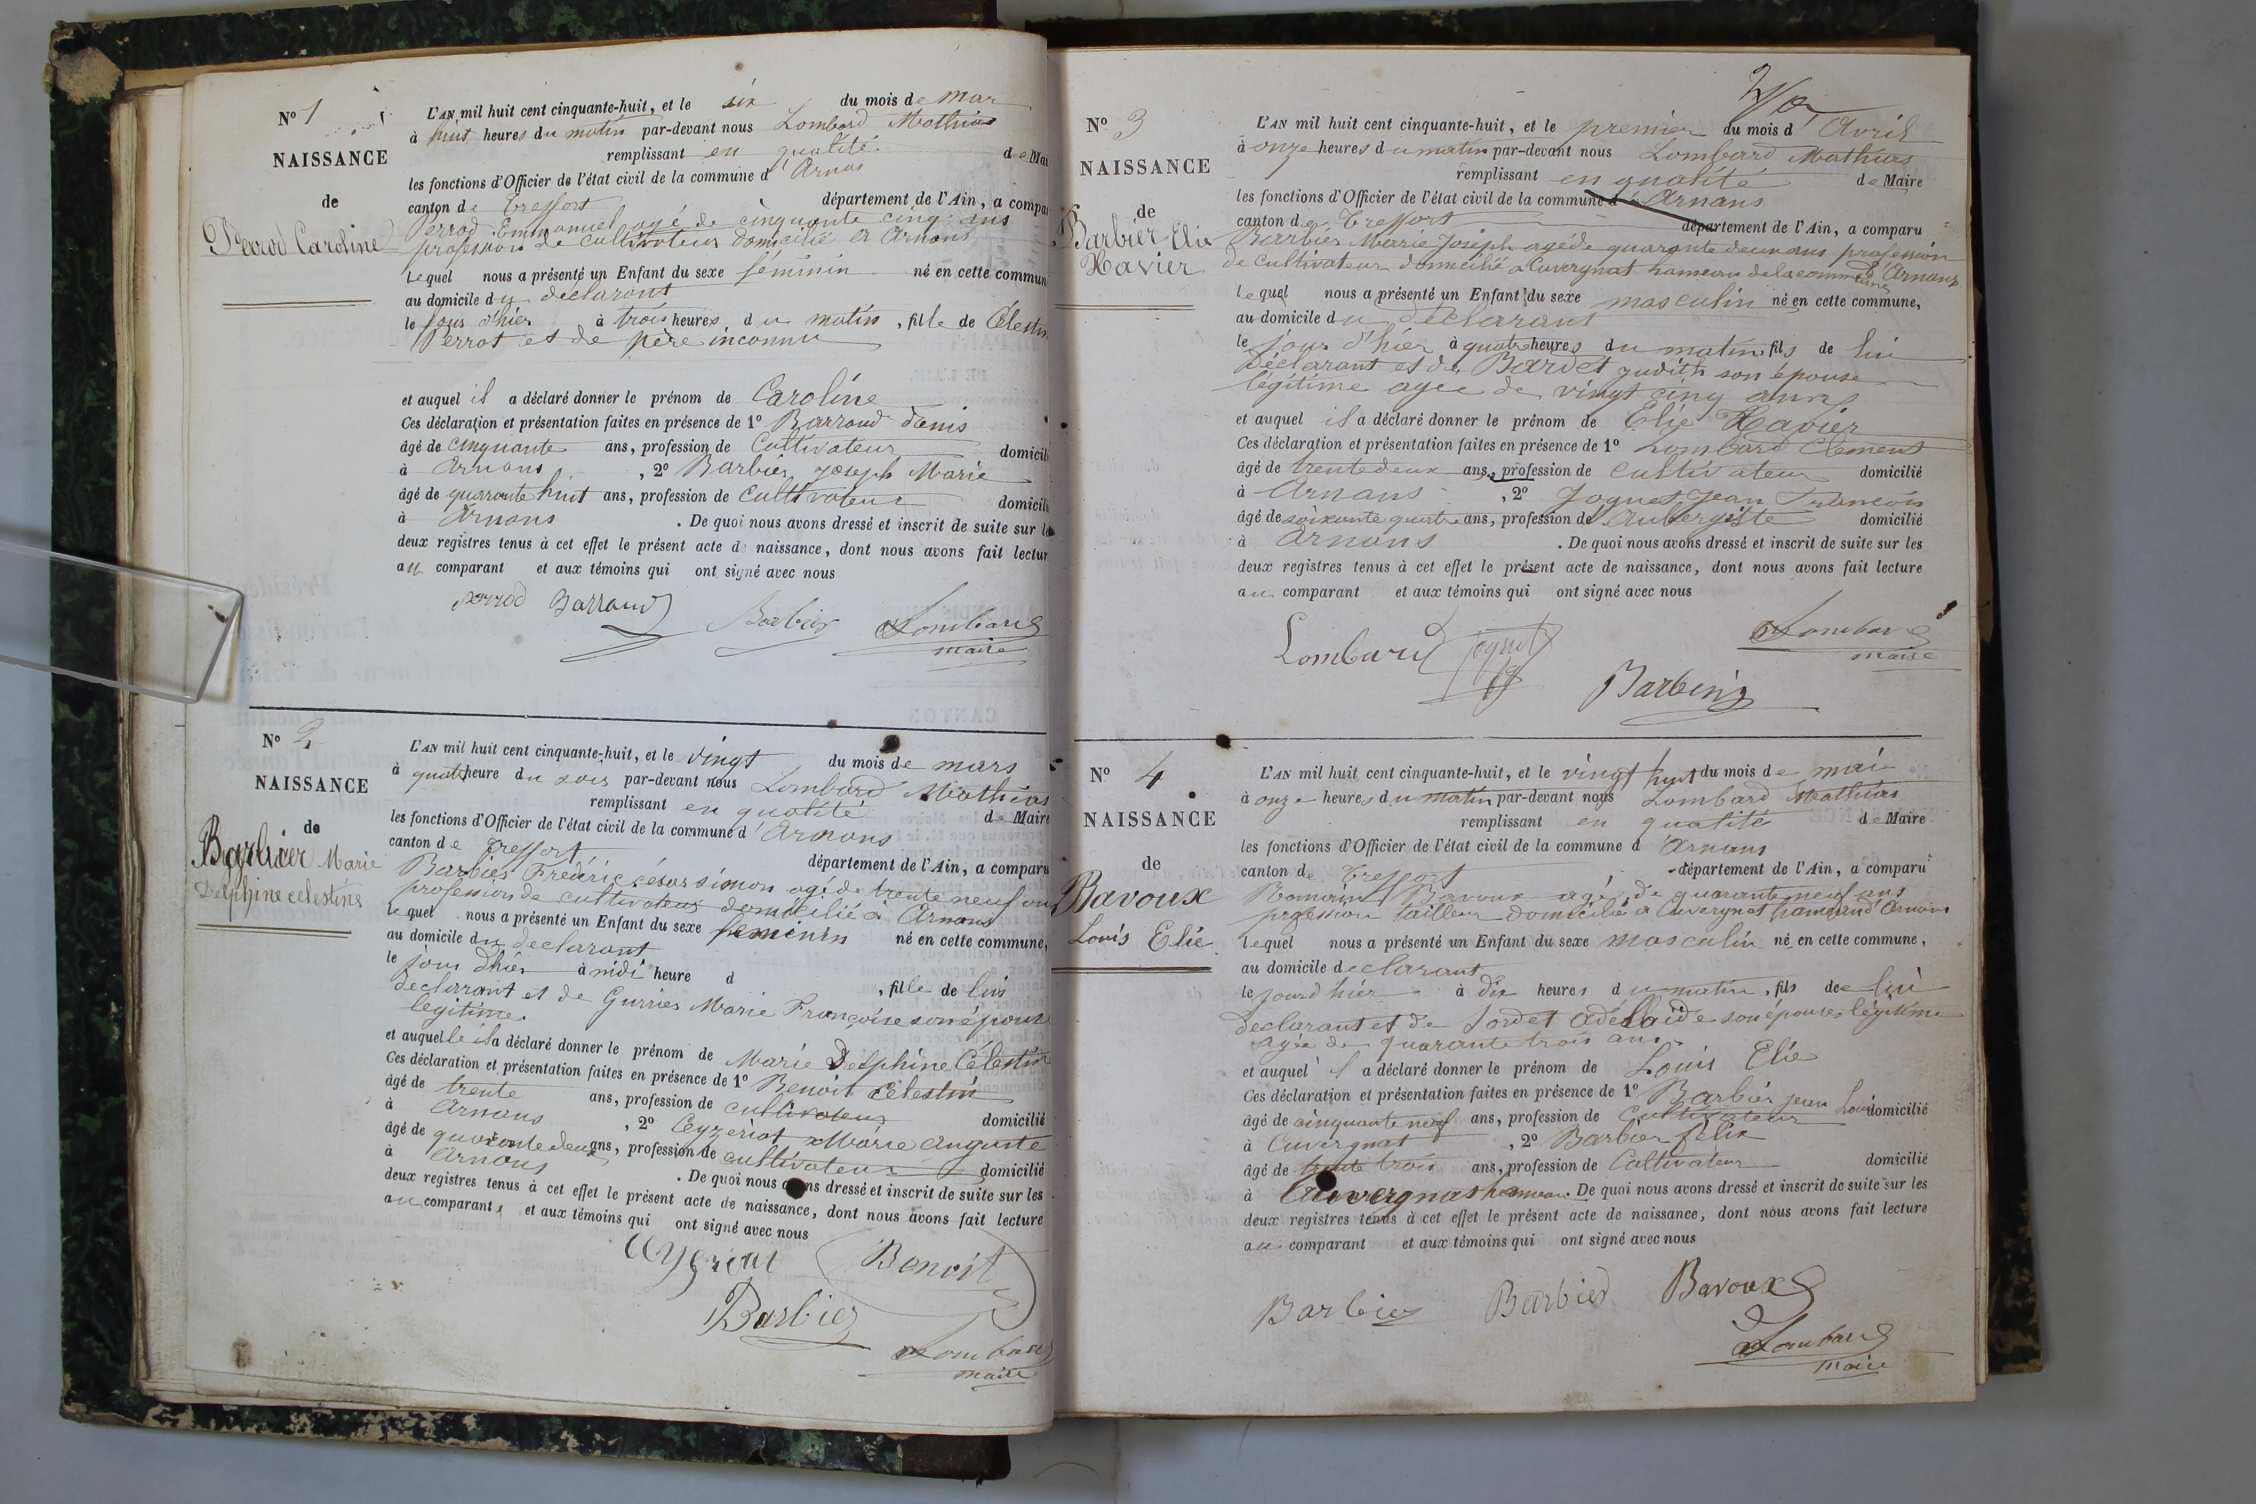 N° 1
NAISSANCE
de
Perrod Caroline
L'AN mil huit cent cinquante-huit, et le six du mois de mar
à huit heures du matin par-devant nous Lombard Mathias
remplissant en qualité de Mai
les fonctions d'Officier de l'état civil de la commune d'Arnans
canton de Treffort département de l'Ain, a compar
Perrod Emmanuel agé de cinquante cinq ans
profession de cultivateur domicilié a Arnans
Lequel nous a présenté un Enfant du sexe féminin né en cette commun
au domicile du déclarant
le jour d'hier à trois heures du matin, fille de Célestin
Perrot et de père inconnu
et auquel il a déclaré donner le prénom de Caroline
Ces déclaration et présentation faites en présence de 1° Barraud denis
âgé de cinquante ans, profession de Cultivateur domicili
à Arnans, 2° Barbier joseph Marie
âgé de quarante huit ans, profession de cultivateur domicili
à Arnans. De quoi nous avons dressé et inscrit de suite sur le
deux registres tenus à cet effet le présent acte de naissance, dont nous avons fait lectur
au comparant et aux témoins qui ont signé avec nous
perrod Barraud Barbier Lombard
maire
N° 2
NAISSANCE
de
Barbier Marie
Delphine celestine
L'AN mil huit cent cinquante-huit, et le vingt du mois de mars
à quatre heure du soir par-devant nous Lombard Mathias
remplissant en qualité de Maire
les fonctions d'Officier de l'état civil de la commune d'Arnans
canton de Treffort département de l'Ain, a comparu
Barbier Fréderic césar simon agé de trente neuf an
profession de cultivateur domicilié a Arnans
Lequel nous a présenté un Enfant du sexe femenin né en cette commune,
au domicile du declarant
le jour d'hier à midi heure d , fille de lui
declarant et de Marie Françoise son épouse
legitime.
et auquelle il a déclaré donner le prénom de Marie Delphine Célestin
Ces déclaration et présentation faites en présence de 1° Benoit Célestin
âgé de trente ans, profession de cultivateur domicilié
à Arnans, 2° Ceyzeriat Marie Auguste
âgé de quarante deux ans, profession de cultivateur domicilié
à Arnans. De quoi nous avons dressé et inscrit de suite sur les
deux registres tenus à cet effet le présent acte de naissance, dont nous avons fait lecture
au comparant, et aux témoins qui ont signé avec nous
Benoit
Barbier
Lombard
maire
N° 3
NAISSANCE
de
Barbier Elie
Xavier
L'AN mil huit cent cinquante-huit, et le premier du mois d'Avril
à onze heures du matin par-devant nous Lombard Mathias
remplissant en qualité de Maire
les fonctions d'Officier de l'état civil de la commune d'Arnans
canton de Treffort département de l'Ain, a comparu
Barbier Marie Joseph agé de quarante deux ans profession
de cultivateur domicilié a Cuvergnat hameau de la commune d'Arnans
Lequel nous a présenté un Enfant du sexe masculin né en cette commune,
au domicile du déclarant
le jour d'hier à quatre heures du matin fils de lui
Déclarant et de Bardet judith son épouse
légitime agee de vingt cinq ans
et auquel il a déclaré donner le prénom de Elie Xavier
Ces déclaration et présentation faites en présence de 1° Lombard Clement
âgé de trente deux ans, profession de cultivateur domicilié
à Arnans, 2° Joguet Jean François
âgé de soixante quatre ans, profession de Aubergiste domicilié
à Arnans. De quoi nous avons dressé et inscrit de suite sur les
deux registres tenus à cet effet le présent acte de naissance, dont nous avons fait lecture
au comparant et aux témoins qui ont signé avec nous
Lombard joguet Lombard
maire
Barbier
N° 4
NAISSANCE
de
Bavoux
Louis Elie
L'AN mil huit cent cinquante-huit, et le vingt huit du mois de mai
à onze heures du matin par-devant nous Lombard Mathias
remplissant en qualité de Maire
les fonctions d'Officier de l'état civil de la commune d'Arnans
canton de Treffort département de l'Ain, a comparu
Romain Bavoux agé de quarante neuf ans
profession tailleur domicilié a Cuvergnat hameau d'Arnans
Lequel nous a présenté un Enfant du sexe masculin né en cette commune,
au domicile declarant
le jourd hier à dix heures du matin, fils de lui
declarant et de Sordet Adélaïde son épouse légitime
agée de quarante trois ans
et auquel il a déclaré donner le prénom de Louis Elie
Ces déclaration et présentation faites en présence de 1° Barbier jean Louis domicilié
âgé de cinquante neuf ans, profession de Cultivateur
à Cuvergnat, 2° Barbier félix
âgé de trente trois ans, profession de Cultivateur domicilié
à Cuvergnat hameau. De quoi nous avons dressé et inscrit de suite sur les
deux registres tenus à cet effet le présent acte de naissance, dont nous avons fait lecture
au comparant et aux témoins qui ont signé avec nous
Barbier Barbier Bavoux
Lombard
maire